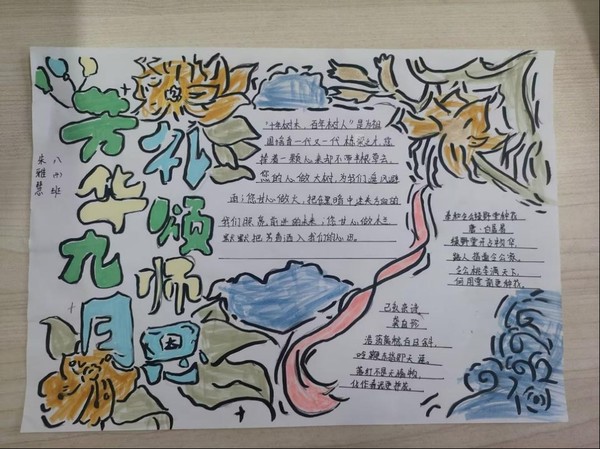 芳华九月
礼颂师恩
八(4)班
朱雅慧
"十年树木,百年树人"是为祖
国培育一代又一代栋梁之才,您
捧着一颗心来却不带半根草去。
您甘心做大树,为我们遮风避
雨;您甘心做
我们照亮前进的未来;您甘心做
默默把芳香洒入我们的心田。
奉和令公绿野堂种花
唐·白居易
绿野堂开占物华,
路人指道令公家。
令公桃李满天下,
何用堂前更种花。
己亥杂诗
龚自珍
浩荡离愁白日斜,
吟鞭东指即天涯。
落红不是无情物,
化作春泥更护花。